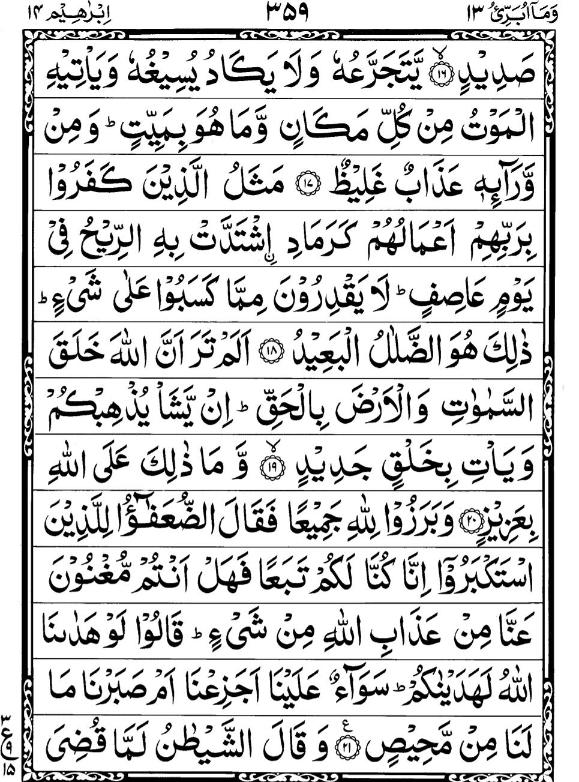 وَمَآ اُبَرِّئُ ۱۳ ۳۵۹ اِبْرٰهِيْم ۱۴
صَدِيْدٍ ۙ‏﴿۱۶﴾ يَّتَجَرَّعُهٗ وَلَا يَكَادُ يُسِيْغُهٗ وَيَاْتِيْهِ
الْمَوْتُ مِنْ كُلِّ مَكَانٍ وَّمَا هُوَ بِمَيِّتٍ ؕ وَمِنْ
وَّرَآئِهٖ عَذَابٌ غَلِيْظٌ ﴿۱۷﴾ مَثَلُ الَّذِيْنَ كَفَرُوْا
بِرَبِّهِمْ اَعْمَالُهُمْ كَرَمَادِ ۨاشْتَدَّتْ بِهِ الرِّيْحُ فِيْ
يَوْمٍ عَاصِفٍ ؕ لَا يَقْدِرُوْنَ مِمَّا كَسَبُوْا عَلٰى شَيْءٍ ؕ
ذٰلِكَ هُوَ الضَّلٰلُ الْبَعِيْدُ ﴿۱۸﴾ اَلَمْ تَرَ اَنَّ اللّٰهَ خَلَقَ
السَّمٰوٰتِ وَالْاَرْضَ بِالْحَقِّ ؕ اِنْ يَّشَاْ يُذْهِبْكُمْ
وَيَاْتِ بِخَلْقٍ جَدِيْدٍ ۙ﴿۱۹﴾ وَّمَا ذٰلِكَ عَلَى اللّٰهِ
بِعَزِيْزٍ ﴿۲۰﴾ وَبَرَزُوْا لِلّٰهِ جَمِيْعًا فَقَالَ الضُّعَفٰٓؤُا لِلَّذِيْنَ
اسْتَكْبَرُوْٓا اِنَّا كُنَّا لَكُمْ تَبَعًا فَهَلْ اَنْتُمْ مُّغْنُوْنَ
عَنَّا مِنْ عَذَابِ اللّٰهِ مِنْ شَيْءٍ ؕ قَالُوْا لَوْ هَدٰىنَا
اللّٰهُ لَهَدَيْنٰكُمْ ؕ سَوَآءٌ عَلَيْنَآ اَجَزِعْنَآ اَمْ صَبَرْنَا مَا
لَنَا مِنْ مَّحِيْصٍ ﴿۲۱﴾ ع وَقَالَ الشَّيْطٰنُ لَمَّا قُضِيَ
۳
ع ۹
۱۵